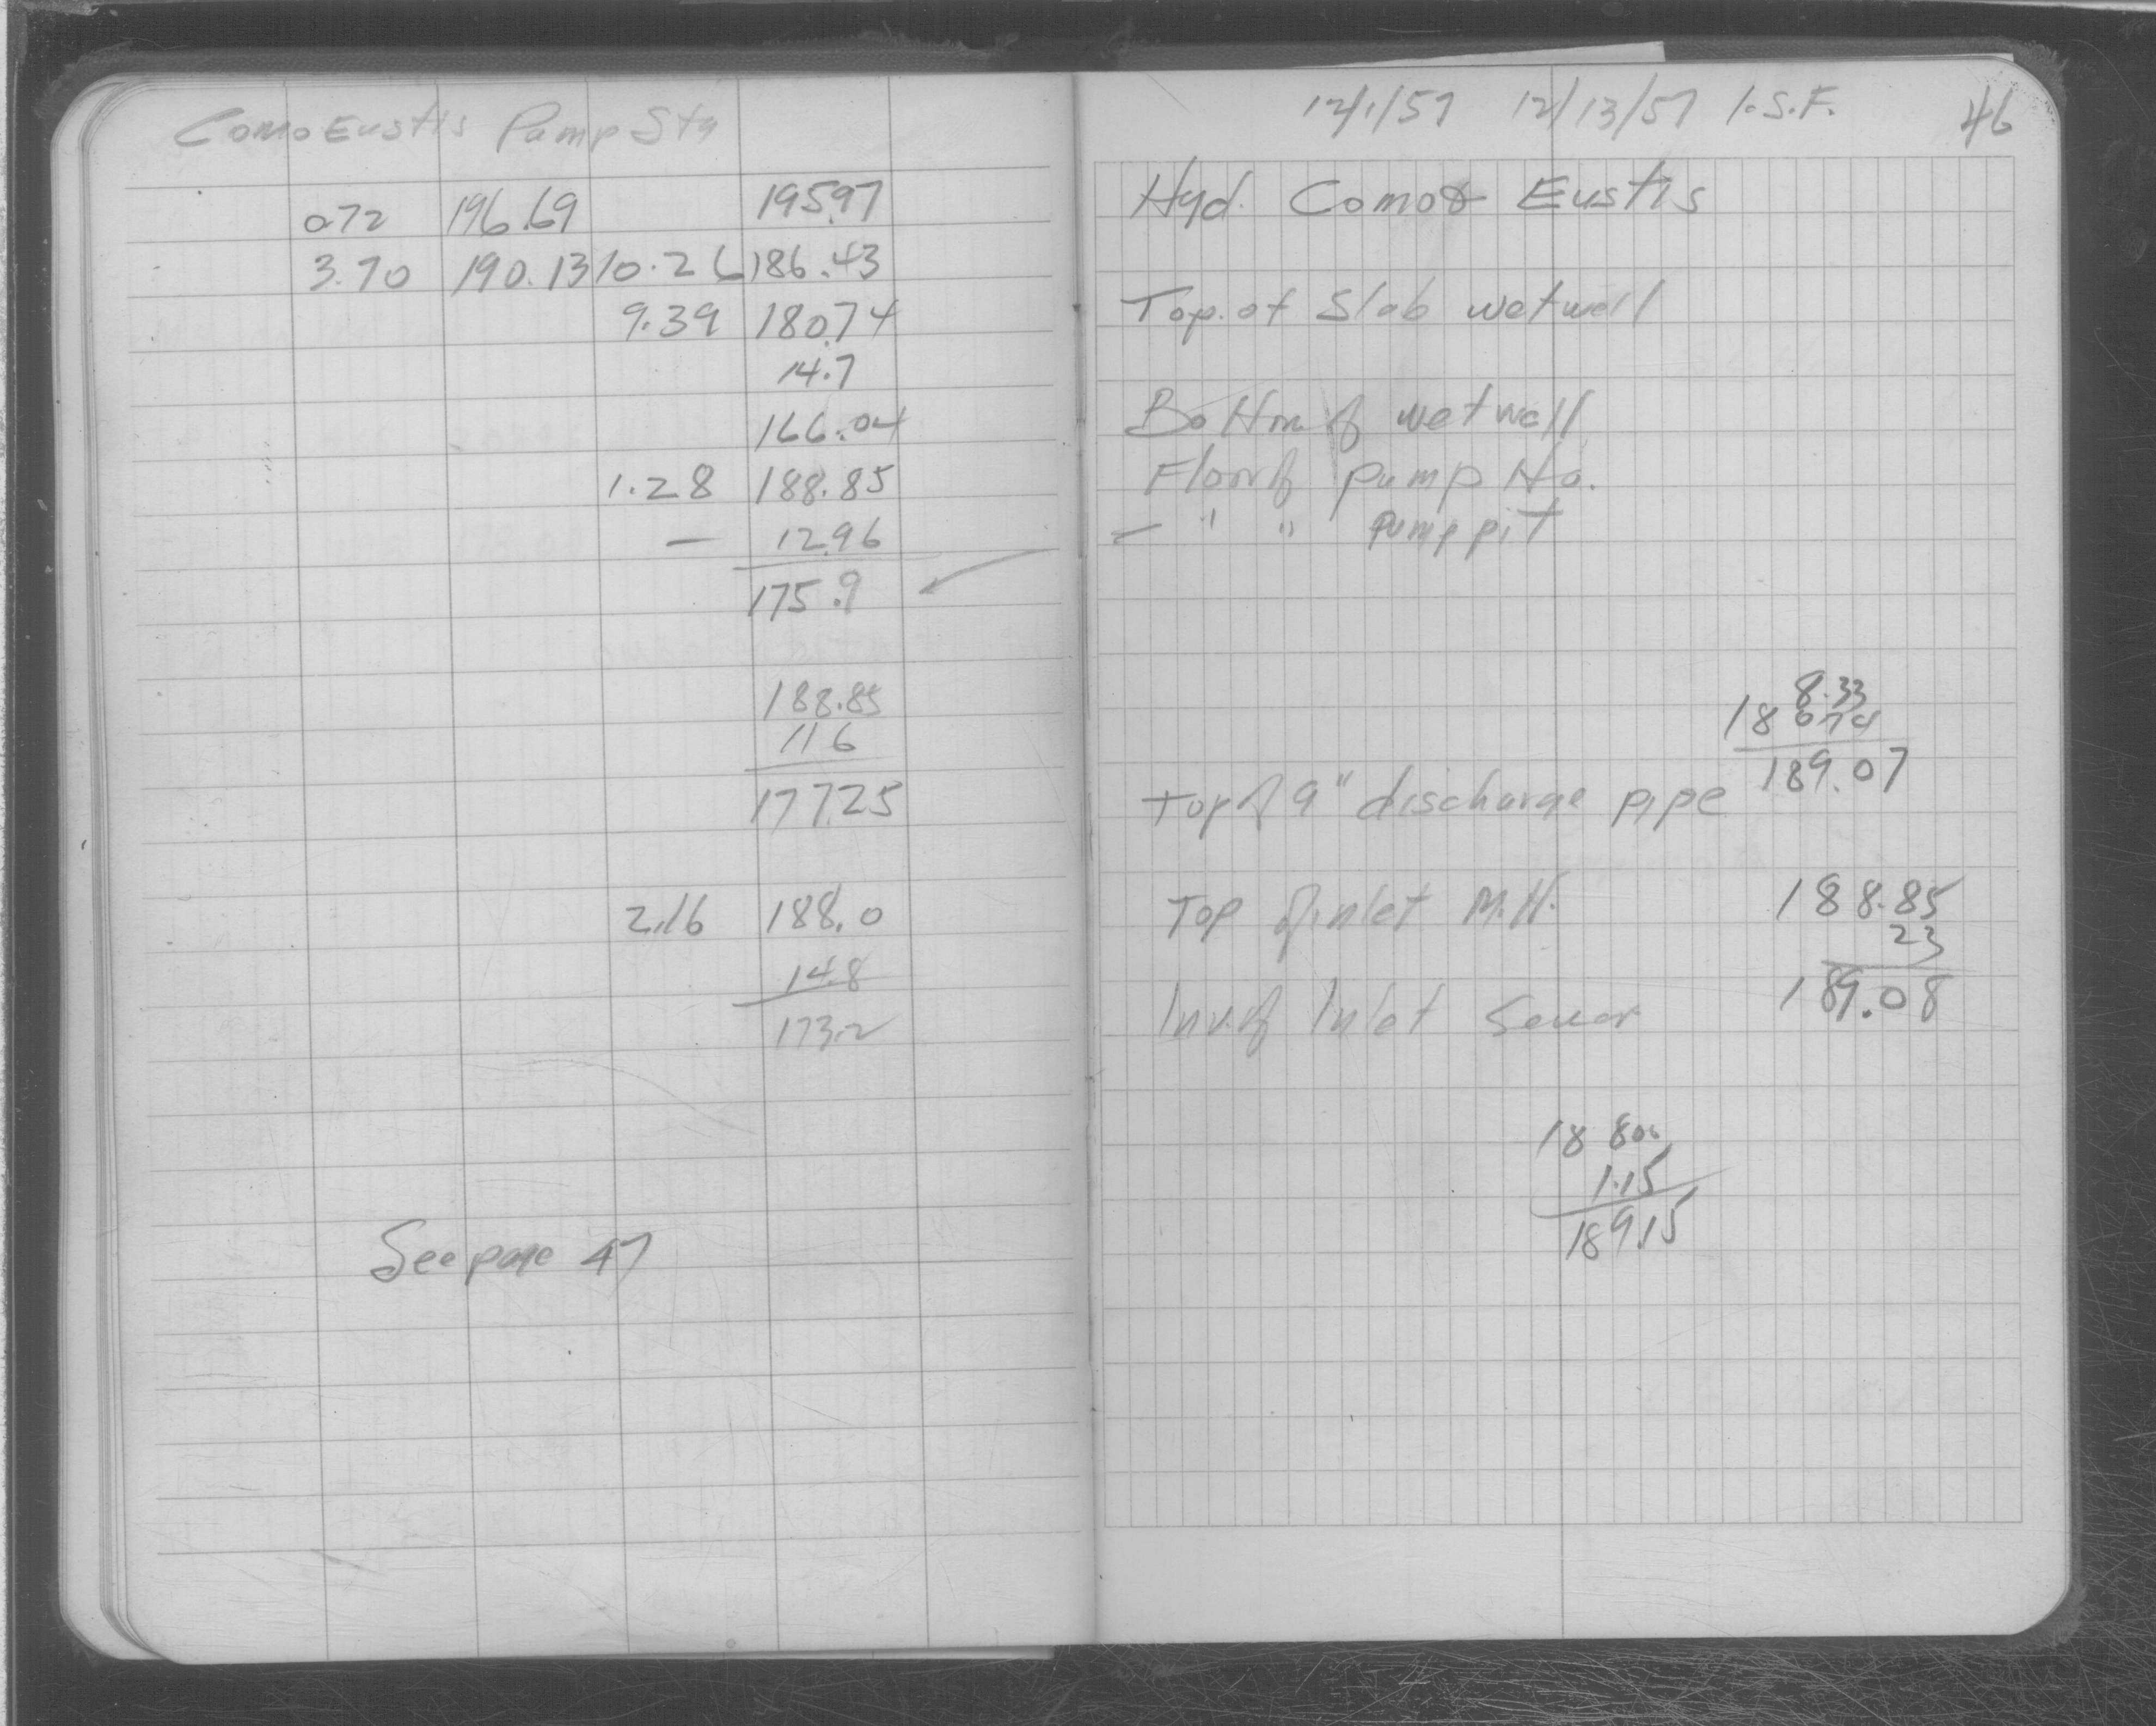 Como Eustis Pump Sta
0.72 196.69 195.97
3.70 190.13 10.26 186.43
9.39 180.74
14.7
166.04
1.28 188.85
— 12.96
175.9
188.85
11 6
177.25
2.16 188.0
14.8
173.2
See page 47
12/1/57 12/13/57 I.S.F. 46
Hyd. Como & Eustis
Top. of Slab wetwell
Bottom of wetwell
Floor of Pump Ho.
— " " Pump pit
8.33
18 0.74
189.07
Top of 9" discharge pipe
Top of inlet M.H.
188.85
23
189.08
Inv. of Inlet Sewer
18 800
1.15
189.15